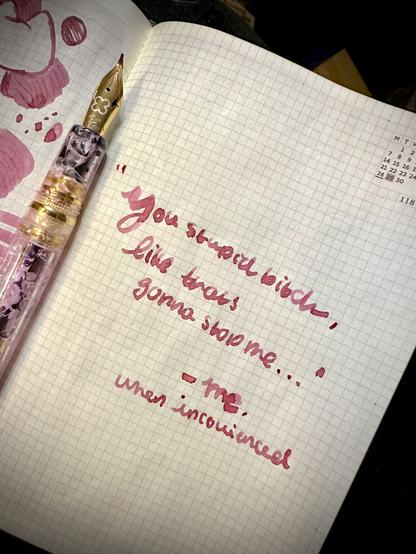 M T W
1 2
7 8 9
14 15 16
21 22 23 24
28 29 30
118
"You stupid bitch,
like thats
gonna stop me..."
- me,
when inconvienced